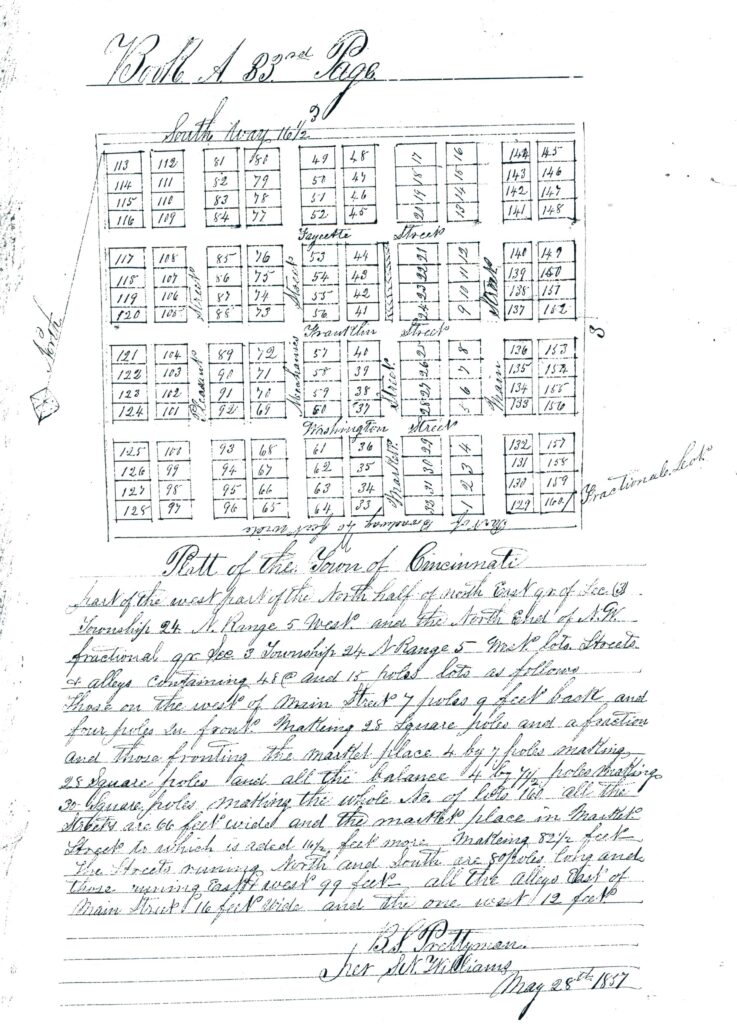 Book A 83rd Page
South Way 16 1/2
113 112 81 80 49 48 17 16 144 45
114 111 82 79 50 47 18 15 143 146
115 110 83 78 51 46 19 14 142 147
116 109 84 77 52 45 20 13 141 148
Fayette Street
117 108 85 76 53 44 21 12 140 149
118 107 86 75 54 43 22 11 139 150
119 106 87 74 55 42 23 10 138 151
120 105 88 73 56 41 24 9 137 152
Franklin Street
121 104 89 72 57 40 25 8 136 153
122 103 90 71 58 39 26 7 135 154
123 102 91 70 59 38 27 6 134 155
124 101 92 69 60 37 28 5 133 156
Washington Street
125 100 93 68 61 36 29 4 132 157
126 99 94 67 62 35 30 3 131 158
127 98 95 66 63 34 31 2 130 159
128 97 96 65 64 33 32 1 129 160
Pleasant Street
Mechanics Street
Market Street
Main Street
North
Fractional Lot
Part of Broadway 40 feet wide
Platt of the Town of Cincinnati
part of the west part of the North half of north East qr of Sec (3)
Township 24 N Range 5 West and the North End of N.W.
fractional qr Sec 3 Township 24 N Range 5 West lots Streets
& alleys containing 48 @ and 15 poles lots as follows
those on the west of Main Street 7 poles 9 feet back and
four poles in front Making 28 Square poles and a fraction
and those fronting the market place 4 by 7 poles making
28 Square poles and all the balance 4 by 7 1/2 poles Making
30 Square poles making the whole No. of lots 160 all the
Streets are 66 feet wide and the market place in Market
Street to which is aded 16 1/2 feet more Making 82 1/2 feet
The Streets running North and South are 80 poles long and
those running East & west 99 feet all the alleys East of
Main Street 16 feet wide and the one west 12 feet
B.S. Prettyman
S.N. Williams
May 28th 1837